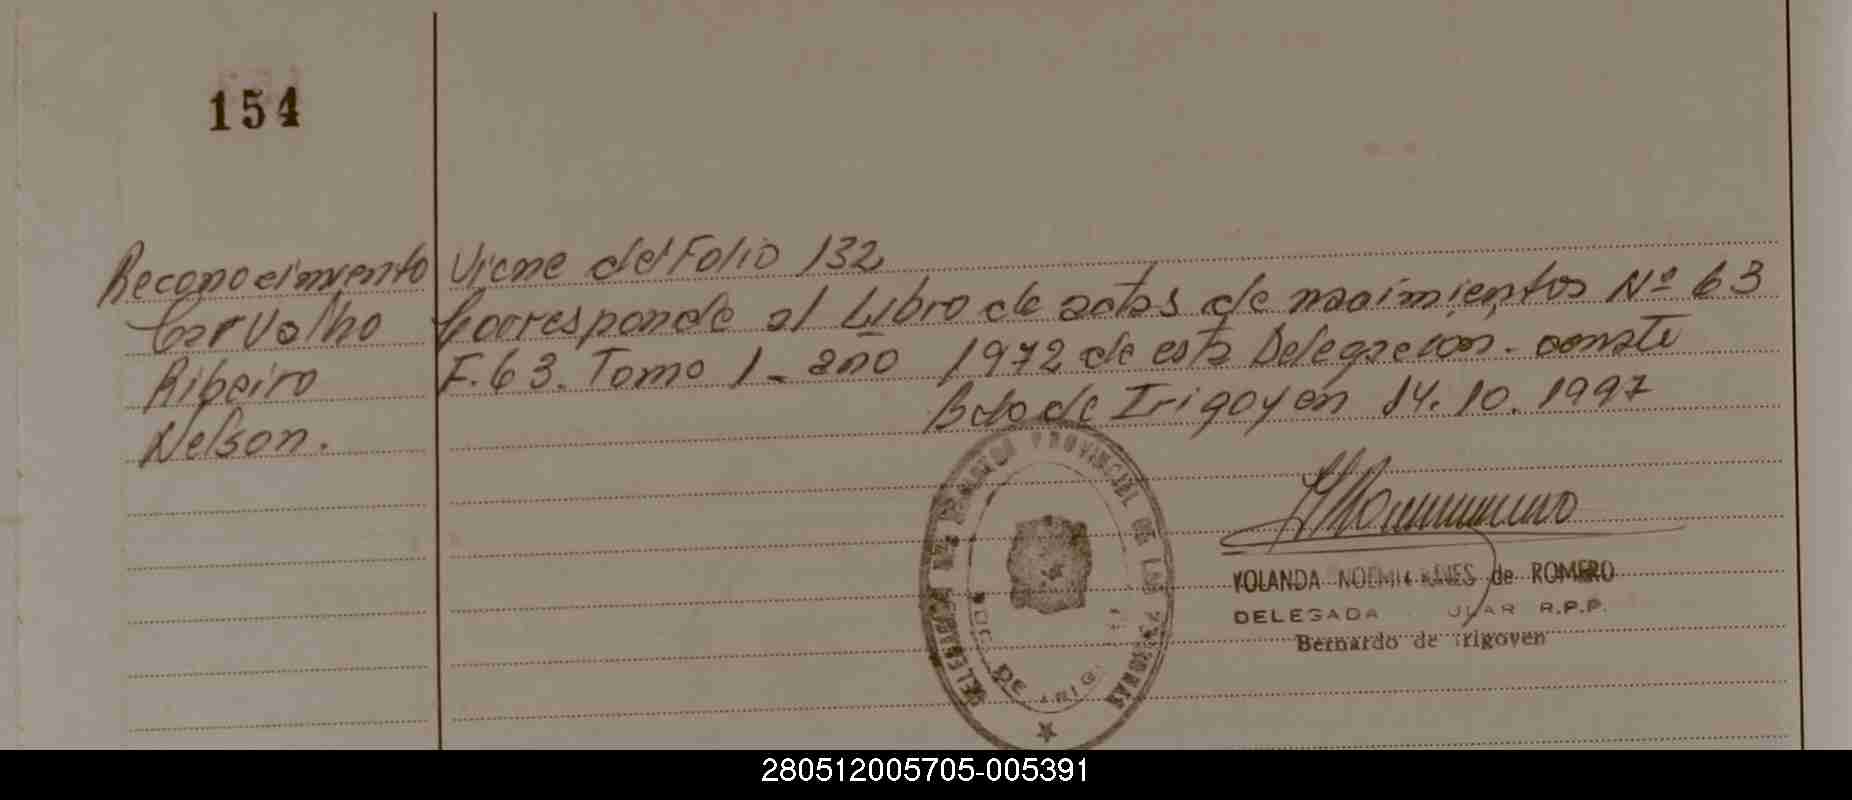 154
Reconocimiento
Carvalho
Ribeiro
Nelson.
Viene del Folio 132
Corresponde al Libro de actas de nacimientos Nº 63
F. 63. Tomo 1 - año 1972 de esta Delegacion. conste
Bdo de Irigoyen 14.10.1997
PROVINCIAL DE LAS PERSONAS
DE IRIG
YOLANDA NOEMI de ROMERO
DELEGADA R.P.P.
Bernardo de Irigoyen
280512005705-005391